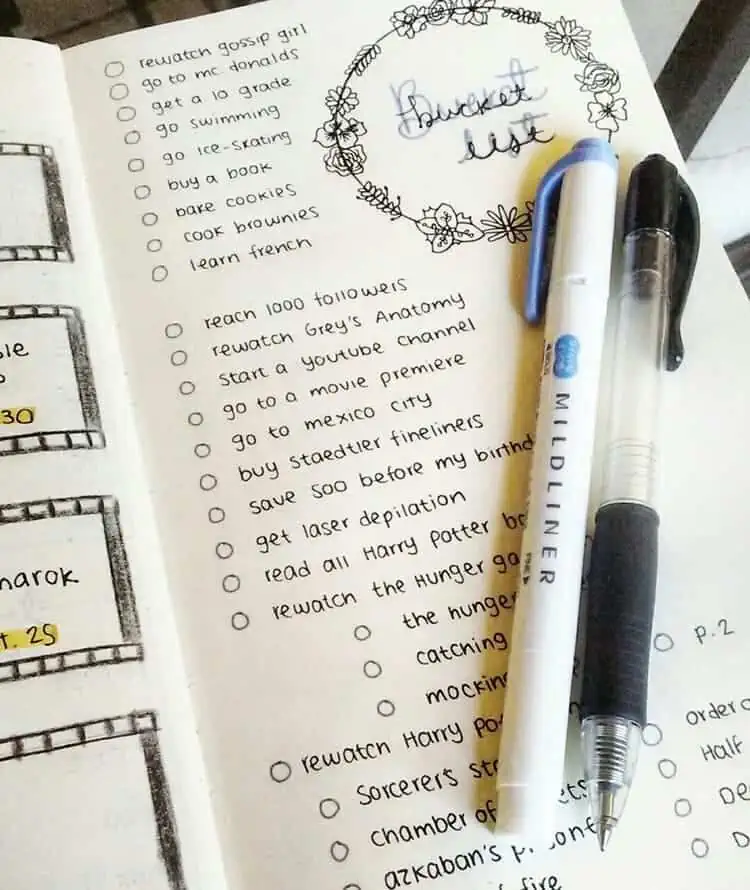 bucket
list
rewatch gossip girl
go to mc donalds
get a 10 grade
go swimming
go ice-skating
buy a book
bake cookies
cook brownies
learn french
reach 1000 followers
rewatch Grey's Anatomy
start a youtube channel
go to a movie premiere
go to mexico city
buy Staedtler fineliners
save 500 before my birthd
get laser depilation
read all Harry Potter
rewatch the Hunger ga
the hunger
catching
mockin
p.2
rewatch Harry Po
Sorcerers st
chamber of ets
azkaban's
fire
order
Half
De
D
MILDLINER
30
narok
t. 25